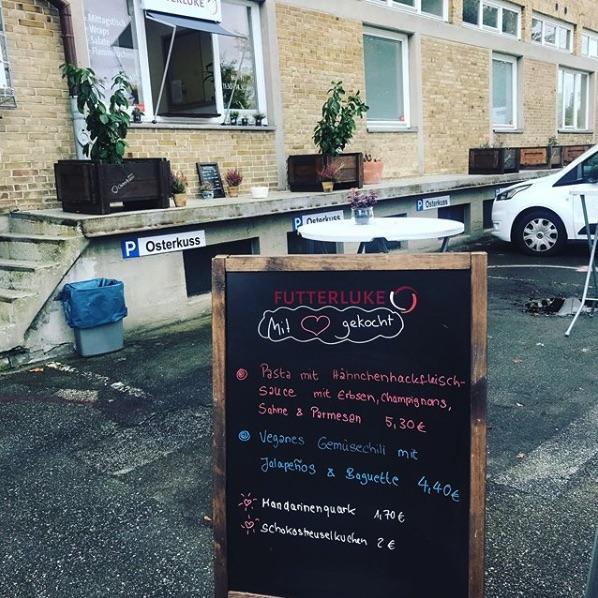 FUTTERLUKE
- Mittagstisch
- Wraps
- Salate
P Osterkuss
P Osterkuss
Osterkuss
FUTTERLUKE
Mit ♡ gekocht
Pasta mit Hähnchenhackfleisch-
sauce mit Erbsen, Champignons,
Sahne & Parmesan 5,30€
Veganes Gemüsechili mit
Jalapeños & Baguette 4,40€
Mandarinenquark 1,70€
Schokostreuselkuchen 2€